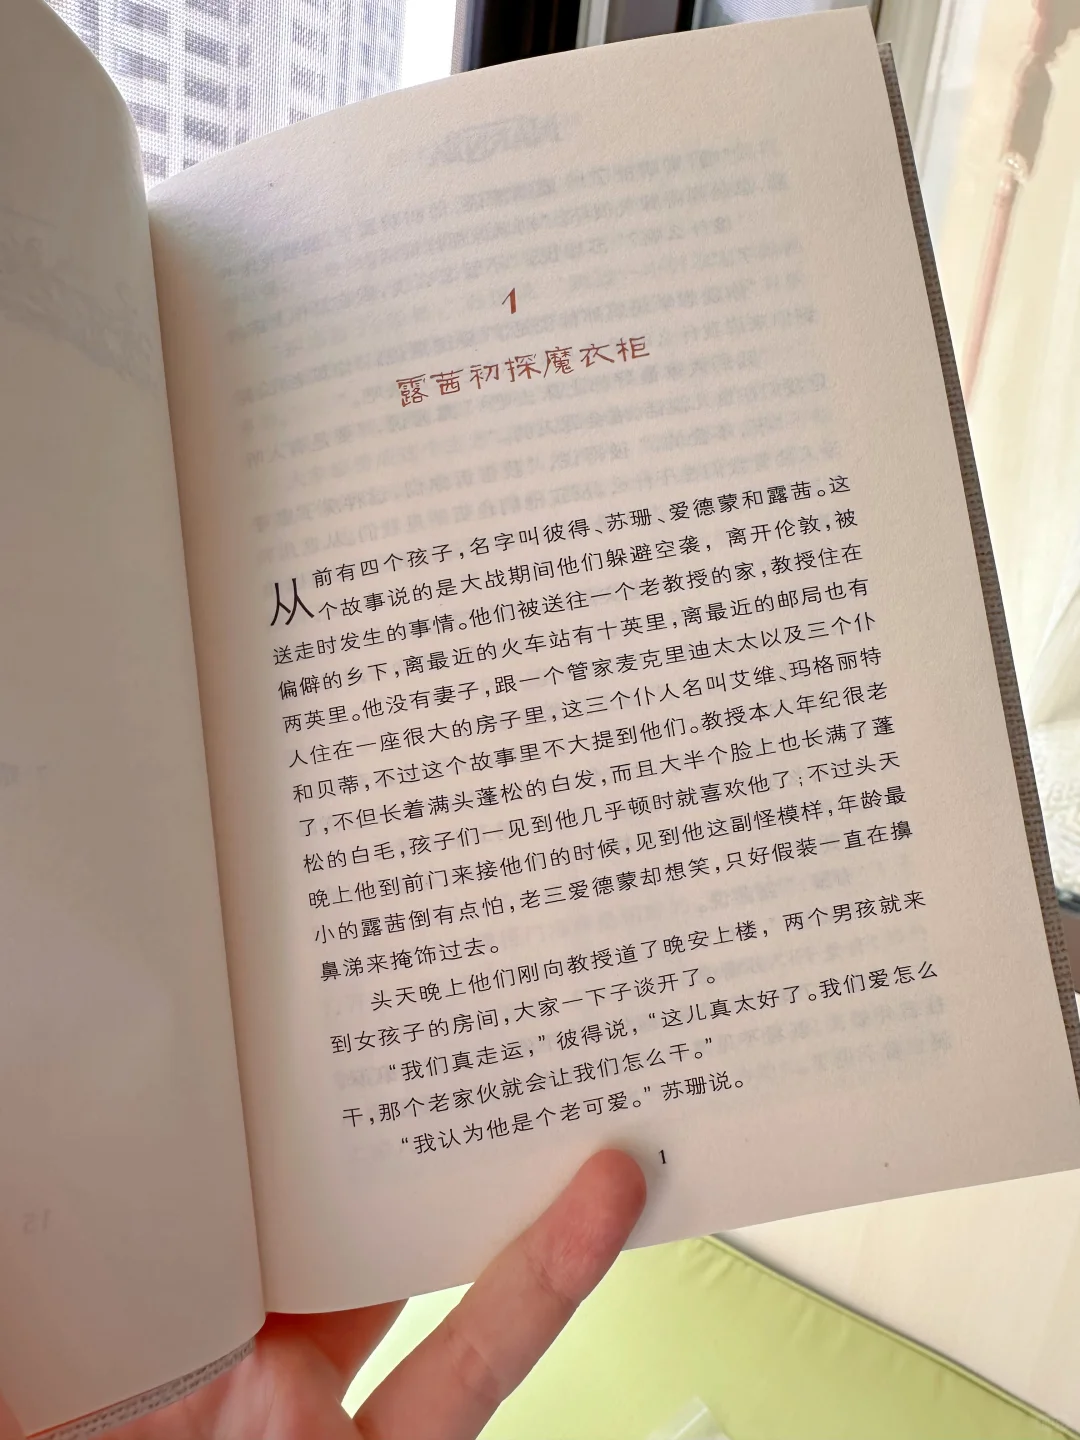 1
露茜初探魔衣柜
从前有四个孩子，名字叫彼得、苏珊、爱德蒙和露茜。这
个故事说的是大战期间他们躲避空袭，离开伦敦，被
送走时发生的事情。他们被送往一个老教授的家，教授住在
偏僻的乡下，离最近的火车站有十英里，离最近的邮局也有
两英里。他没有妻子，跟一个管家麦克里迪太太以及三个仆
人住在一座很大的房子里，这三个仆人名叫艾维、玛格丽特
和贝蒂，不过这个故事里不大提到他们。教授本人年纪很老
了，不但长着满头蓬松的白发，而且大半个脸上也长满了蓬
松的白毛，孩子们一见到他几乎顿时就喜欢他了；不过头天
晚上他到前门来接他们的时候，见到他这副怪模样，年龄最
小的露茜倒有点怕，老三爱德蒙却想笑，只好假装一直在擤
鼻涕来掩饰过去。
头天晚上他们刚向教授道了晚安上楼，两个男孩就来
到女孩子的房间，大家一下子谈开了。
“我们真走运，”彼得说，“这儿真太好了。我们爱怎么
干，那个老家伙就会让我们怎么干。”
“我认为他是个老可爱。”苏珊说。
1